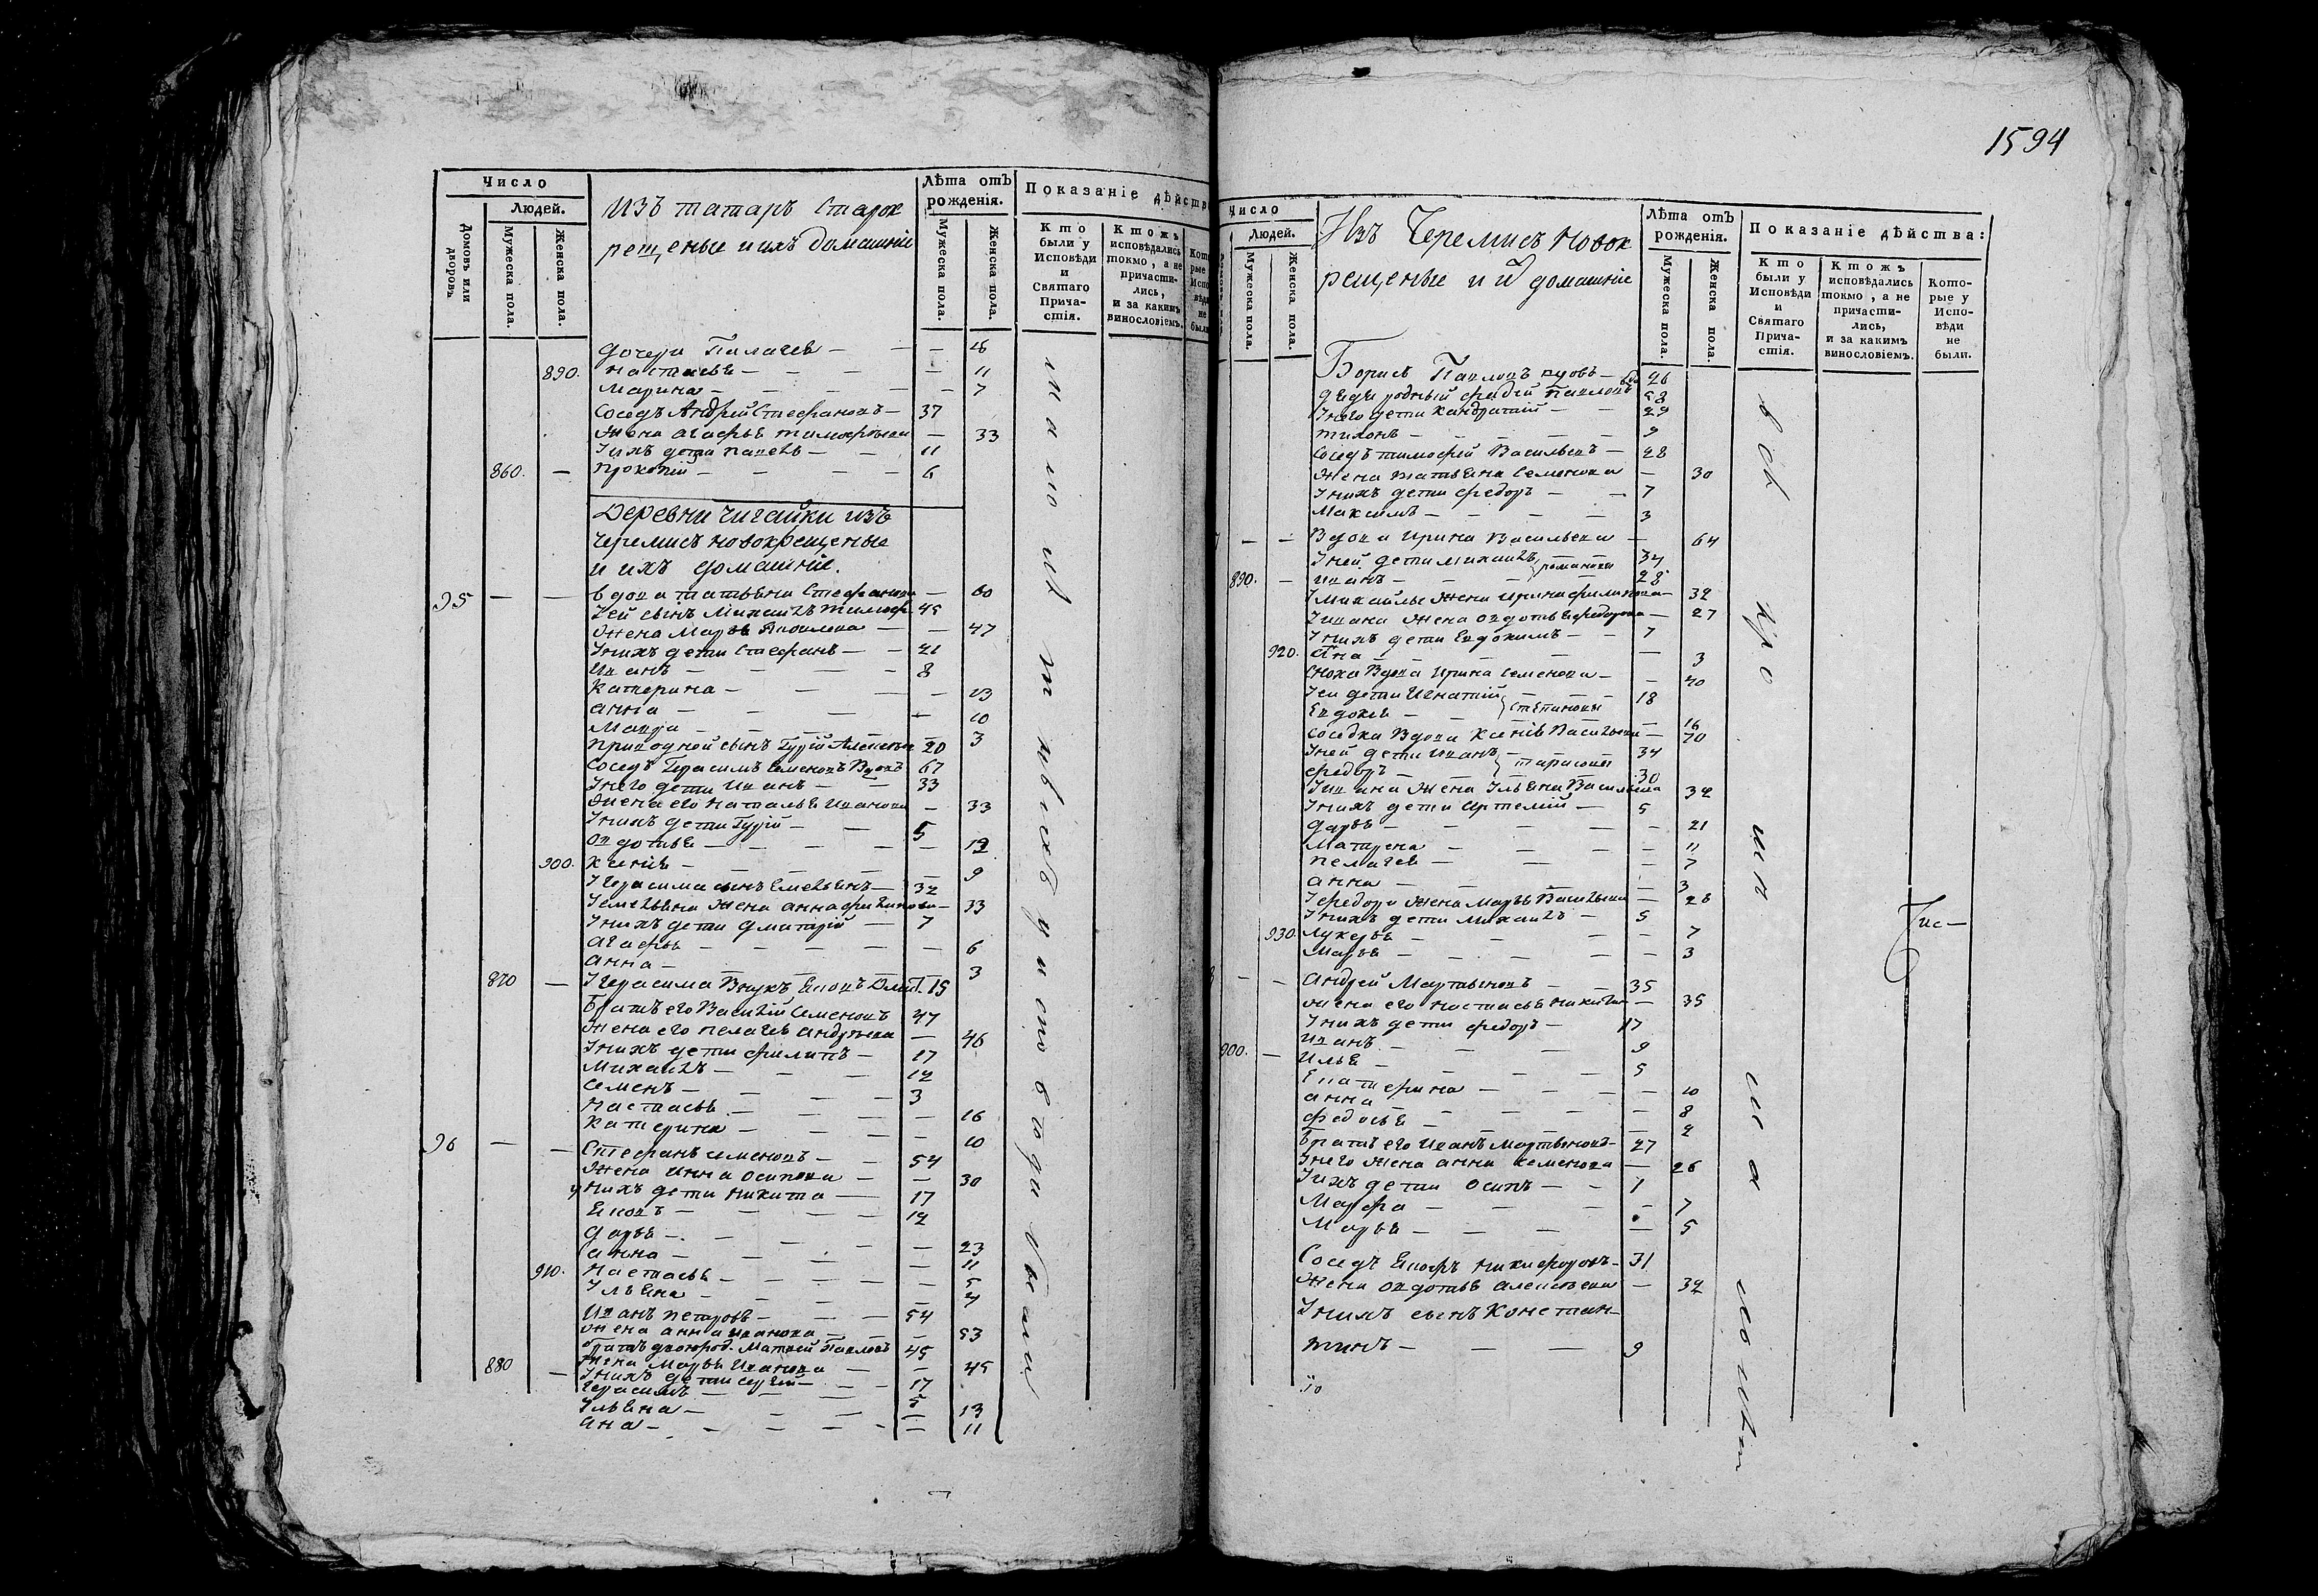 Число
Людей.
Домовъ или дворовъ
Мужеска пола.
Женска пола.
Изъ татаръ старок
рещеные и ихъ домашніе
Лѣта отъ рожденія.
Мужеска пола.
Женска пола.
Показаніе дѣйств
Кто были у Исповѣди и Святаго Прича-стія.
Ктожъ исповѣдались токмо, а не причасти-лись, и за какимъ винословіемъ.
дочери Палагея — — — 16
890. Настасья — — — 11
Марина — — — 7
Соседъ Андрей Стефановъ — 37
Жена Агафья Тимофѣева — 33
У ихъ дети Павелъ — — 11
860. — Прокопій — — — 6
Деревни Чигайки изъ
черемисъ новокрещеные
и ихъ домашніе.
95 — — Вдова татьяна Стефанова — 60
У ей сынъ Михаилъ Тимоф. 45
Жена Марья Яковлева — — 47
У нихъ дети Стефанъ — — 21
Иванъ — — — 8
Катерина — — — 13
Анна — — — 10
Мавра — — — 3
Приводной сынъ Гурій Алексѣевъ 20
Соседъ Герасимъ Семеновъ Вдовъ 67
У него дети Иванъ — — 33
Жена его Наталья Иванова — 33
У нихъ дети Гурій — — 5
Овдотья — — — 12
900. Ксенія — — — 9
У Герасима сынъ Емельянъ — 32
У Емельяна жена Анна Филипова — 33
У нихъ дети Дмитрій — 7
Агафья — — — 6
Анна — — — 3
870 — У Герасима Внукъ Яковъ Дмит. 15
Братъ его Василій Семеновъ 47
Жена его Пелагея Андреева — 46
У нихъ дети Филипъ — 17
Михаилъ — — — 12
Семенъ — — — 3
Настасья — — — 16
Катерина — — — 10
96 — — Стефанъ Семеновъ — — 54
Жена Анна Осипова — — 30
У нихъ дети Никита — 17
Яковъ — — — 12
Дарья — — — 23
Анна — — — 11
910. Настасья — — — 5
Ульяна — — —
Иванъ Петровъ — — 54
Жена Анна Иванова — — 53
Братъ двоюрод. Матвей Павловъ 45
880 — Жена Марья Иванова — — 45
У нихъ дети Сергей — — 17
Герасимъ — — — 5
Ульяна — — — 13
Ана — — — 11
1594
Число
Людей.
Мужеска пола.
Женска пола.
Изъ Черемисъ Новок
рещеные и и домашніе
Лѣта отъ рожденія.
Мужеска пола.
Женска пола.
Показаніе дѣйства:
Кто были у Исповѣди и Святаго Прича-стія.
Ктожъ исповѣдались токмо, а не причасти-лись, и за какимъ винословіемъ.
Кото-рые у Испо-вѣди не были.
Борисъ Павловъ — 26
У него дети Кандратій — — 24
Тихонъ — — — 9
Соседъ Тимофей Васильевъ — 28
Жена Татьяна Семенова — 30
У нихъ дети Федоръ — — 7
Максимъ — — — 3
— — Вдова Ирина Васильева — 64
У ней дети Михаилъ Романовы 34
890. — Иванъ — — 28
У Михайлы жена Ирина Филипова — 32
У Ивана жена Овдотья Федорова — 27
У нихъ дети Евдокимъ — — 7
920. Ана — — — 3
Сноха Вдова Ирина Семенова — 40
У ей дети Игнатій Степановы 18
Евдокея — — 16
Соседка Вдова Ксенія Васильева — 70
У ней дети Иванъ Тарасовы 34
Федоръ — 30
У Ивана жена Ульяна Васильева 32
У нихъ дети Артемій — 5
Дарья — — — 21
Матрена — — — 11
Пелагея — — — 7
Анна — — — 3
У Федора жена Марья Васильева — 28
У нихъ дети Михаилъ — 5
930. Лукерья — — — 7
Марья — — — 3
— — Андрей Мартыновъ — — 35
Жена его Настасья Никитина — 35
У нихъ дети Федоръ — 17
Иванъ — — — 9
900. — Илья — — — 5
Екатерина — — — 10
Анна — — — 8
Федосья — — — 2
Братъ его Иванъ Мартыновъ — 27
У него жена Анна Семенова — 26
У ихъ дети Осипъ — — 1
Марфа — — — 7
Марья — — — 5
Соседъ Никифоровъ — 31
Жена Овдотья Алексеева — 32
У нихъ сынъ Констан-
тинъ — — — 9